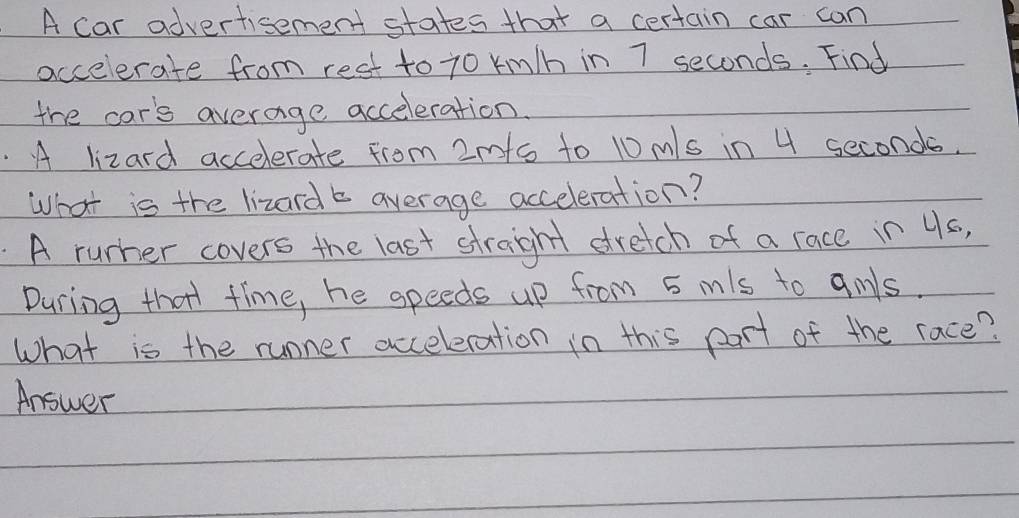 A car advertisement states that a certain car can
accelerate from rest to 70 km/h in 7 seconds. Find
the car's average acceleration.
. A lizard accelerate from 2m/s to 10 m/s in 4 seconds.
What is the lizard's average acceleration?
. A runner covers the last straight stretch of a race in 4s,
During that time, he speeds up from 5 m/s to 9m/s.
What is the runner acceleration in this part of the race?
Answer